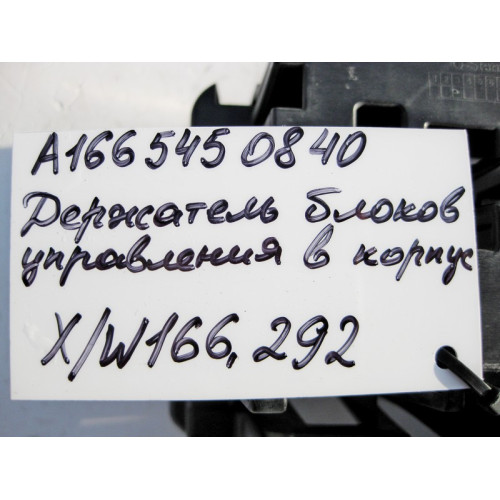 A166 545 08 40
Держатель блоков
управления в корпус
X/W166, 292